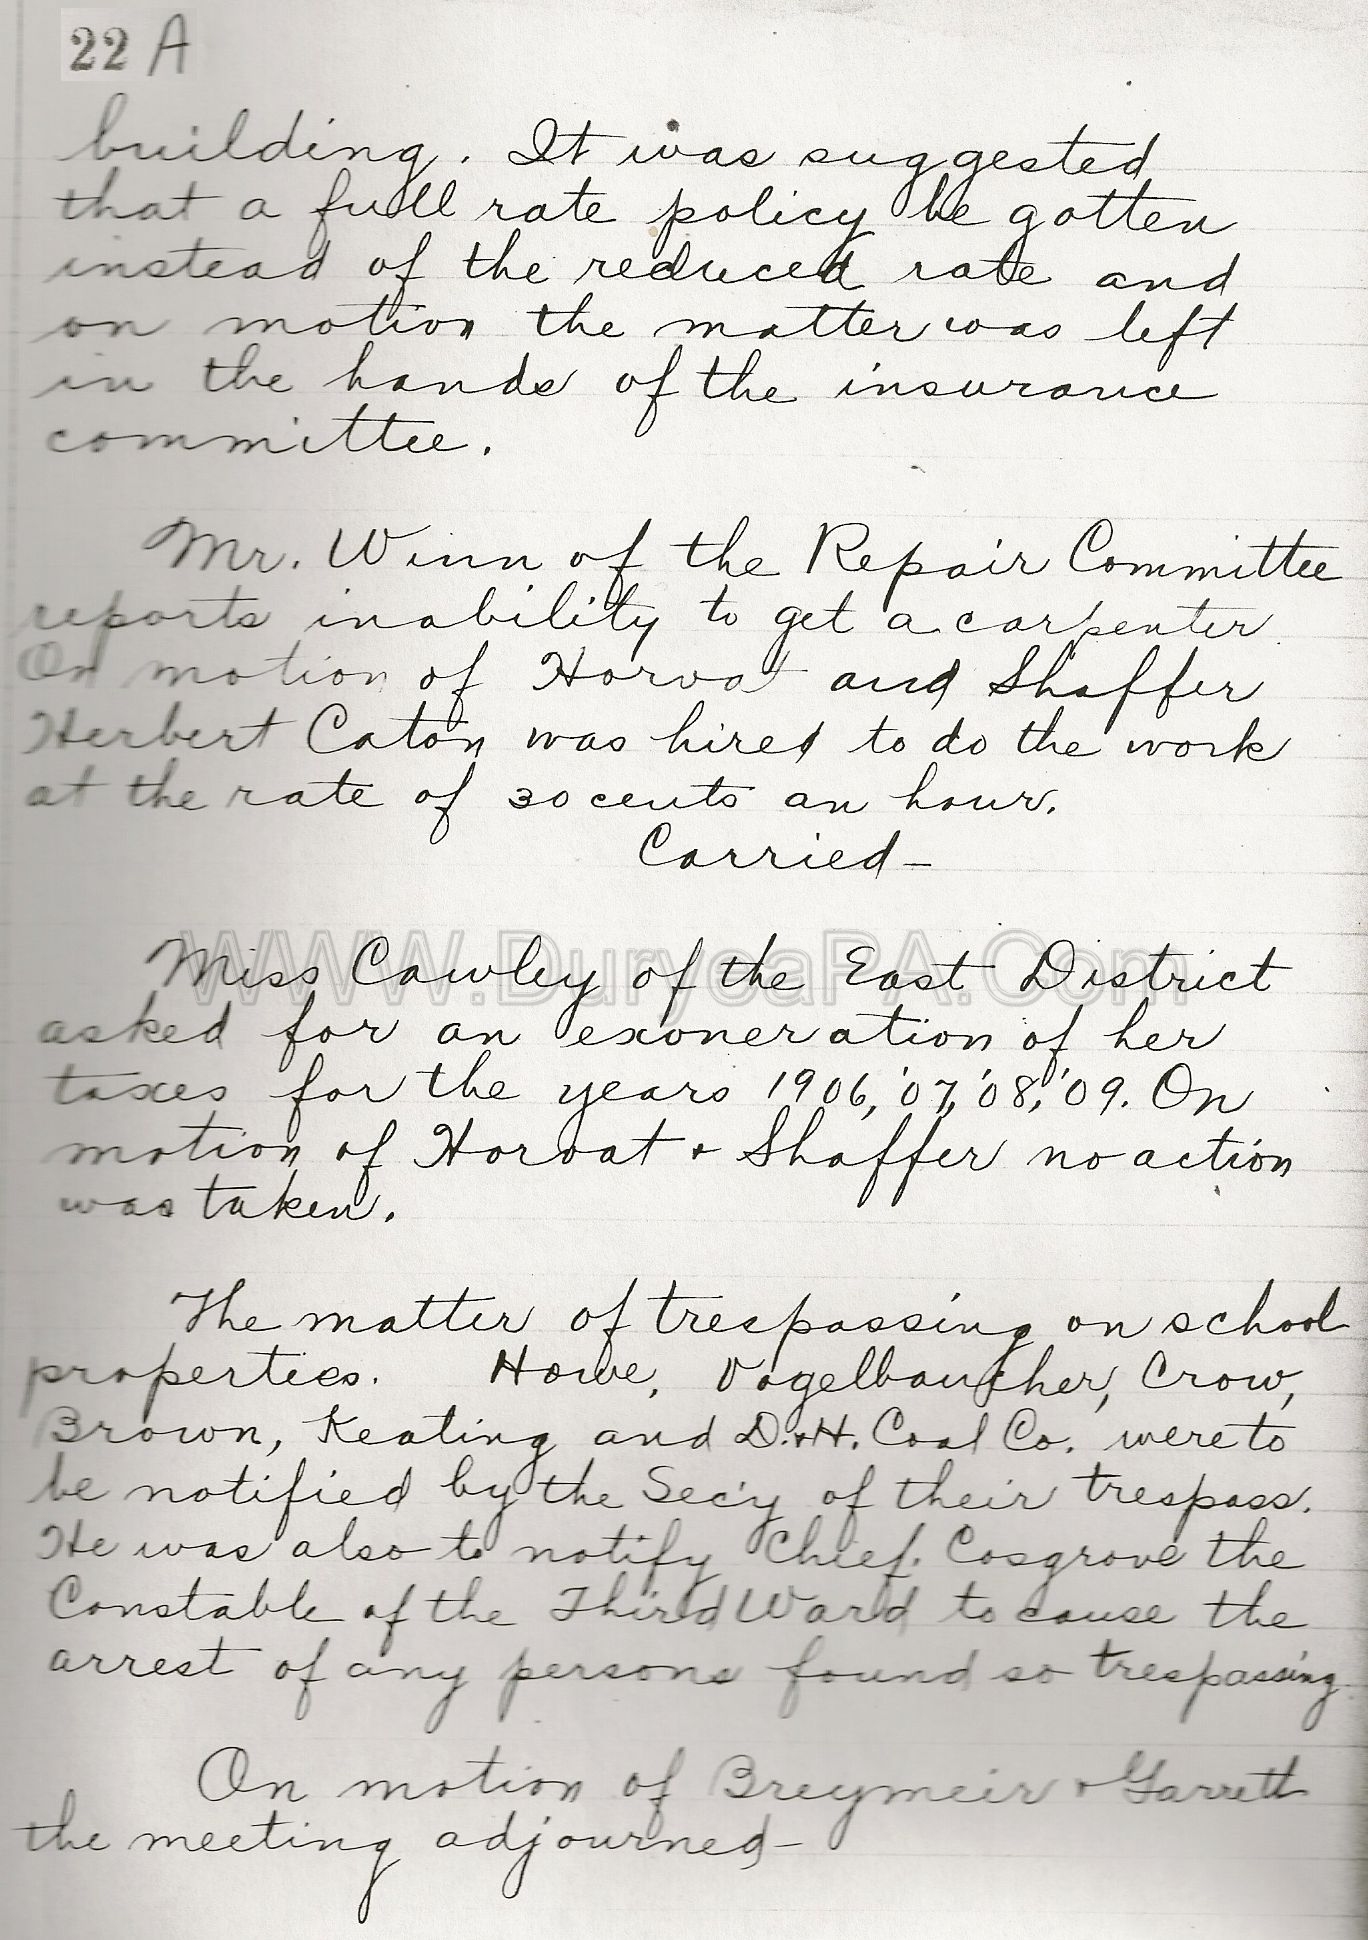 22 A
building. It was suggested
that a full rate policy be gotten
instead of the reduced rate and
on motion the matter was left
in the hands of the insurance
committee.
Mr. Winn of the Repair Committee
reports inability to get a carpenter
On motion of Horvat and Shaffer
Herbert Caton was hired to do the work
at the rate of 30 cents an hour.
Carried-
WWW.DuryeaPA.Com
Miss Cawley of the East District
asked for an exoneration of her
taxes for the years 1906, '07, '08, '09. On
motion of Horvat + Shaffer no action
was taken.
The matter of trespassing on school
properties. Howe, Vogelbaucher, Crow,
Brown, Keating and D.+H. Coal Co. were to
be notified by the Sec'y of their trespass.
He was also to notify Chief. Cosgrove the
Constable of the Third Ward to cause the
arrest of any persons found so trespassing
On motion of Breymeir + Garrett
the meeting adjourned-